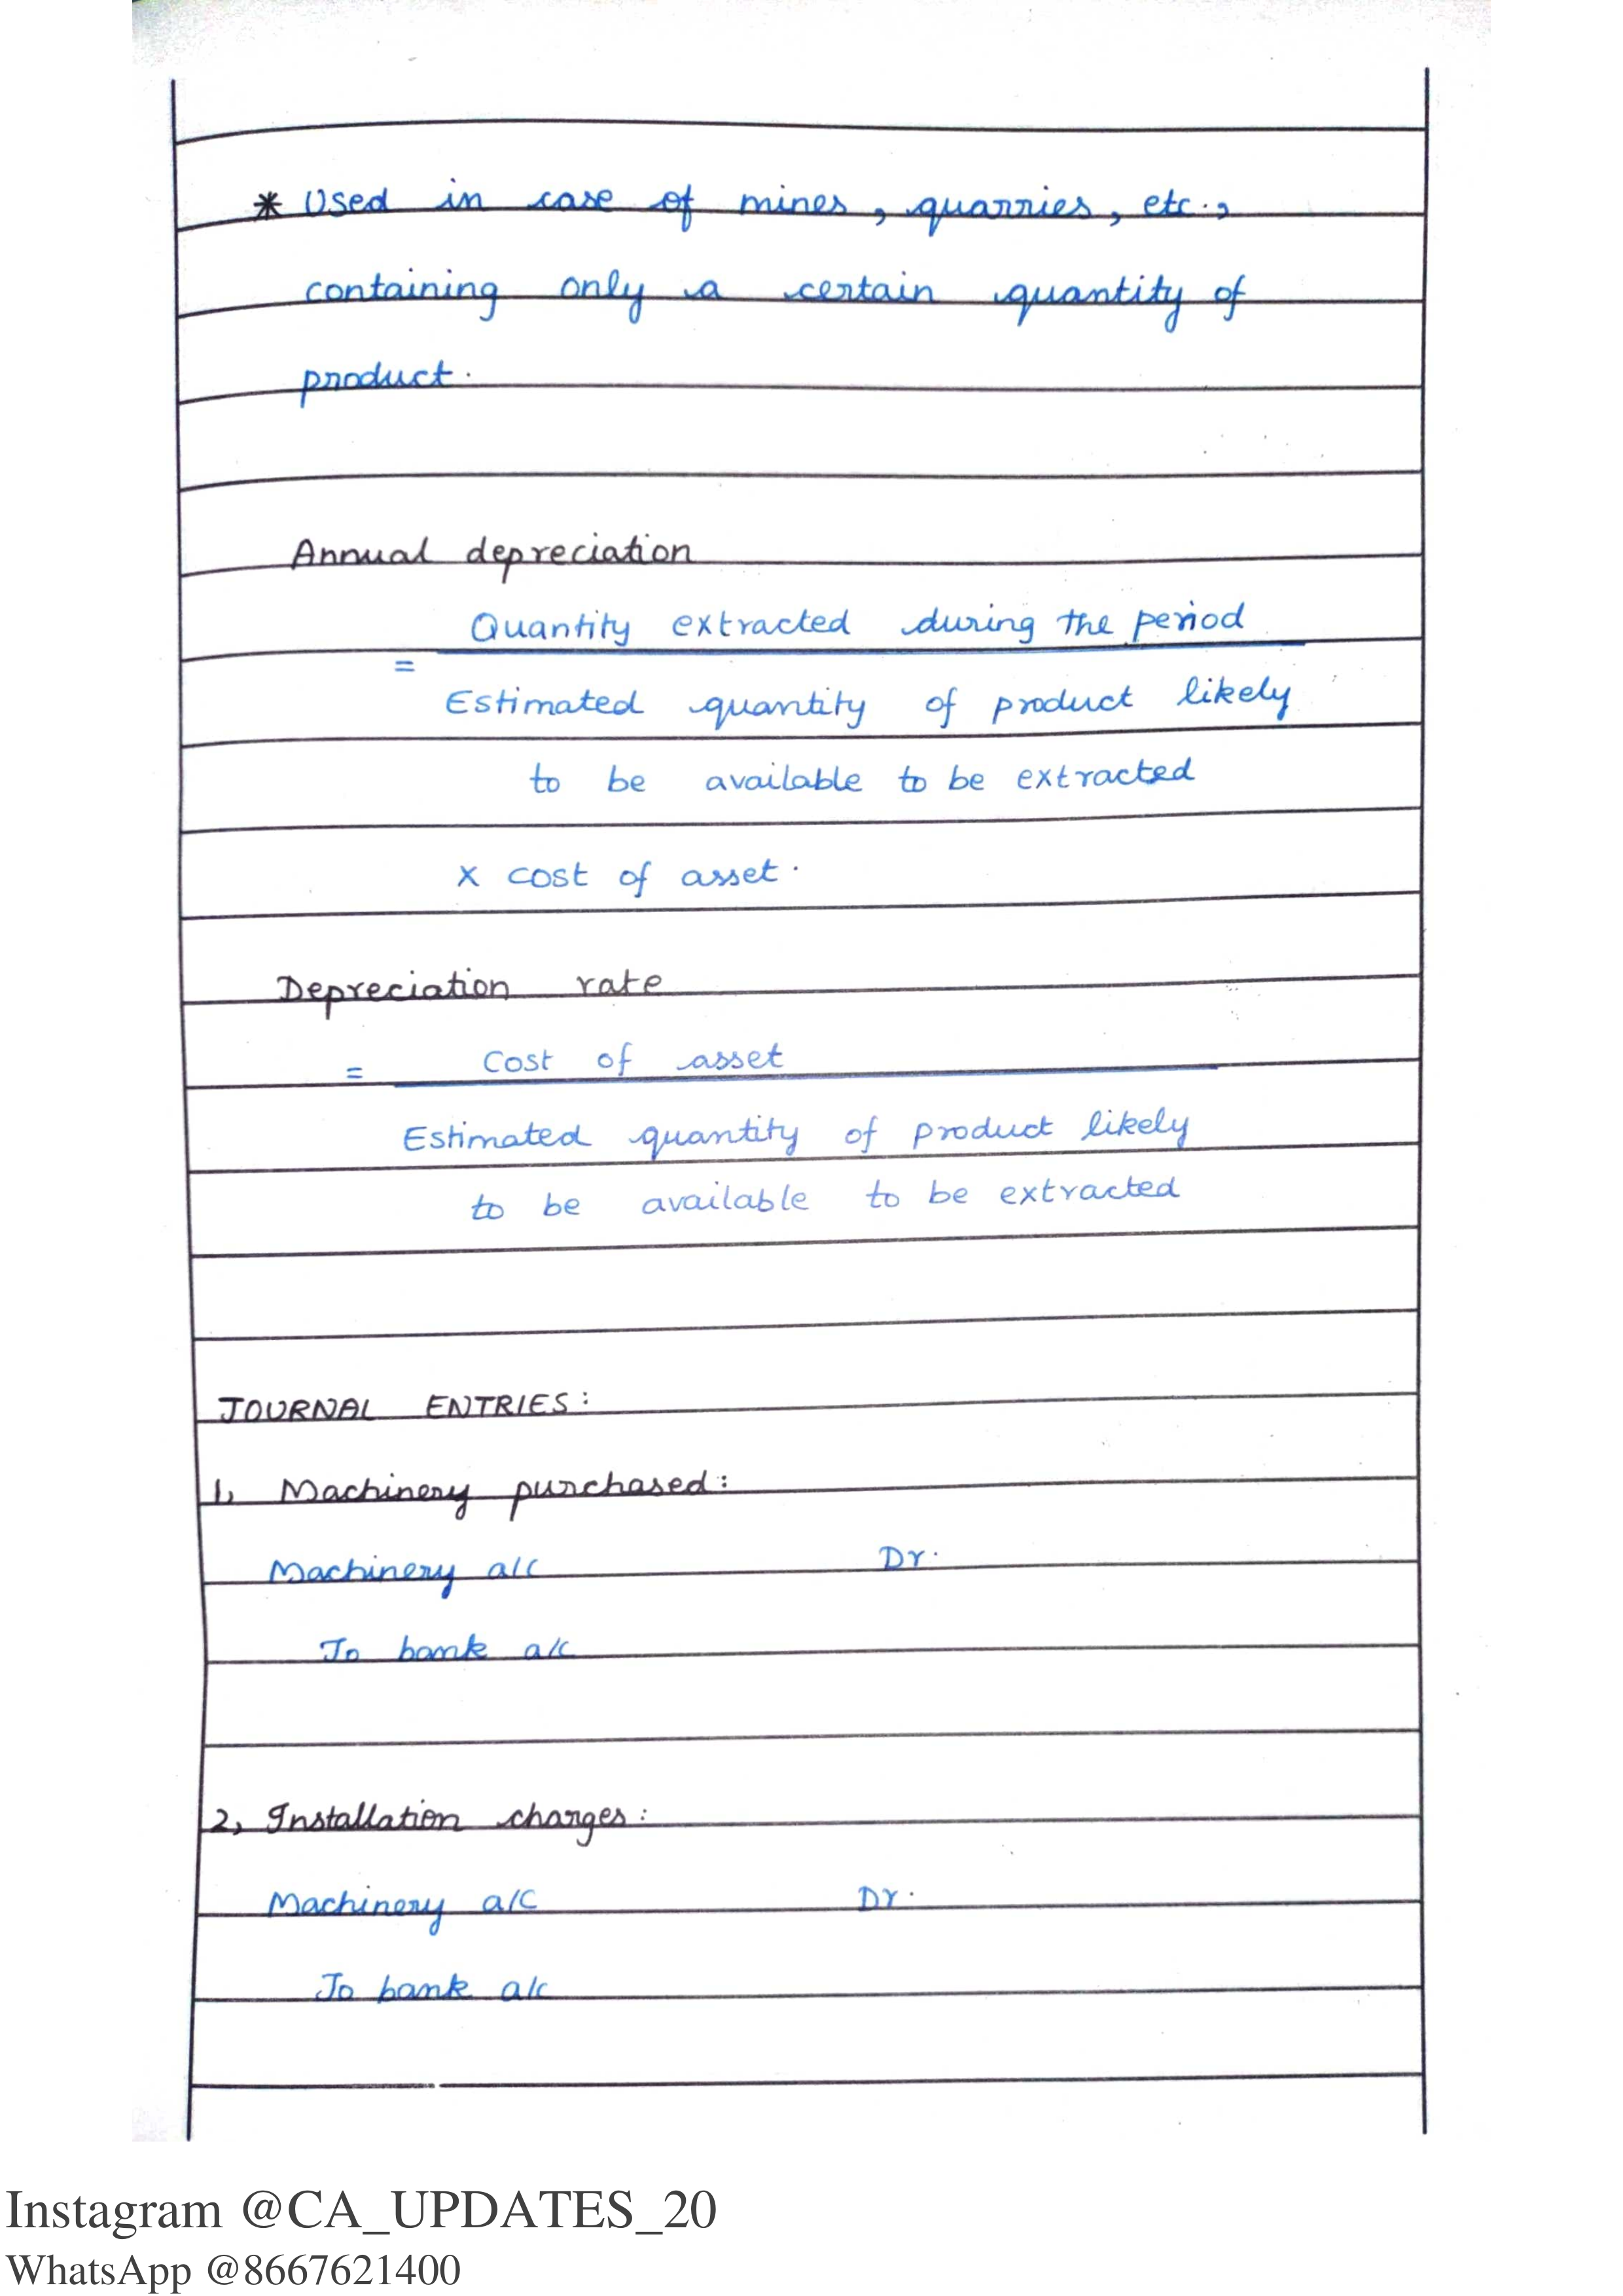 * Used in case of mines, quarries, etc.,
containing only a certain quantity of
product.
Annual depreciation
= Quantity extracted during the period
Estimated quantity of product likely
to be available to be extracted
x cost of asset.
Depreciation rate
= Cost of asset
Estimated quantity of product likely
to be available to be extracted
JOURNAL ENTRIES:
1, Machinery purchased:
Machinery a/c Dr.
To bank a/c
2, Installation charges:
Machinery a/c Dr.
To bank a/c
Instagram @CA_UPDATES_20
WhatsApp @8667621400